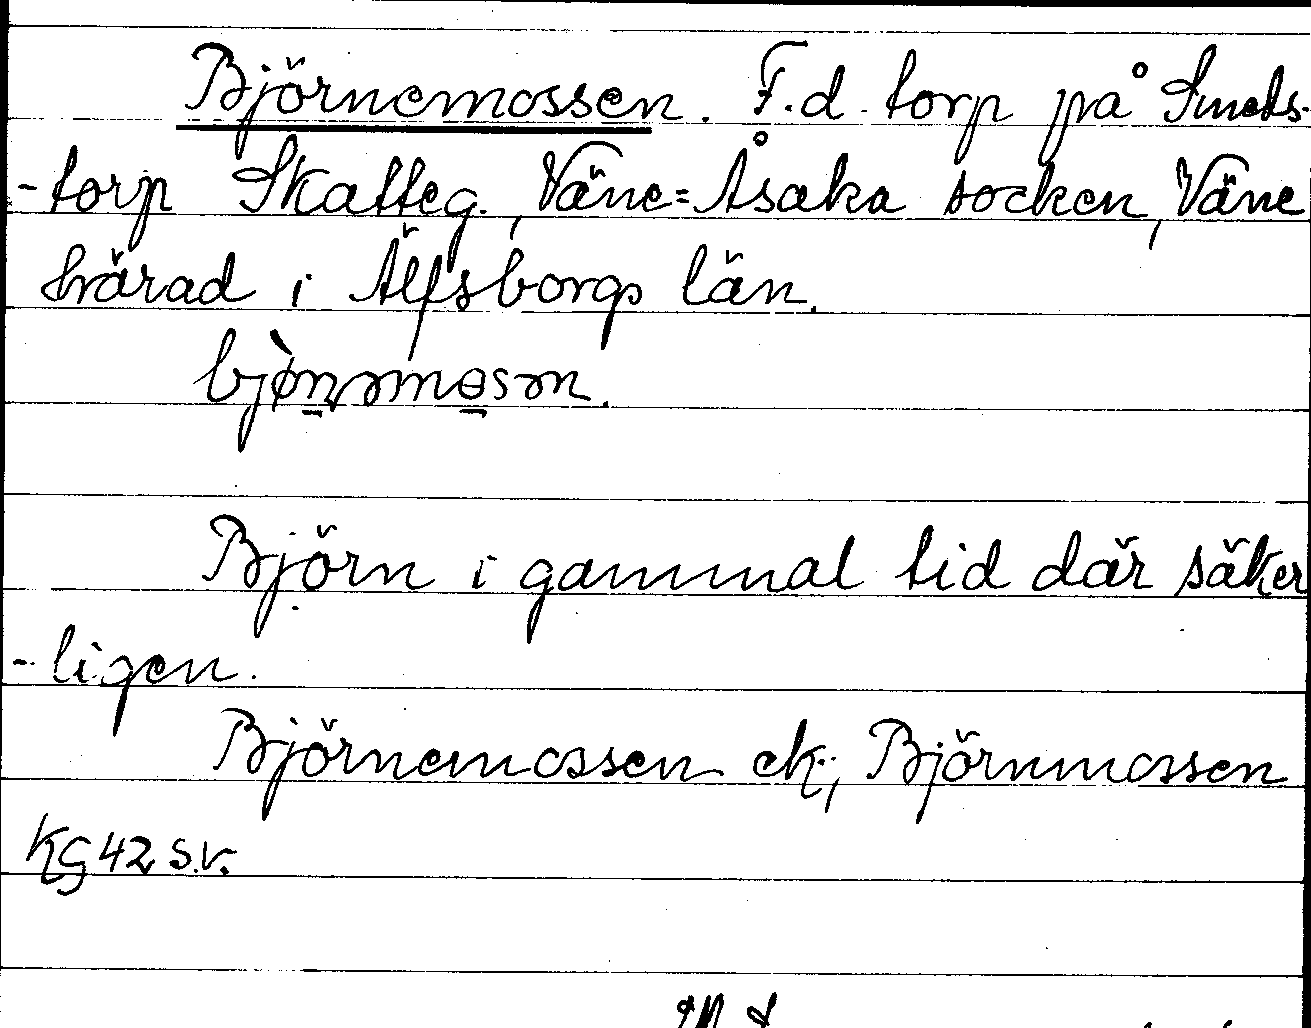 Björnemossen. F.d. torp på Smeds-
-torp Skatteg., Väne-Åsaka socken, Väne
härad i Älfsborgs län.
Björn i gammal tid där säker
-ligen.
Björnemossen ek; Björnmossen
KG 42 s.v.